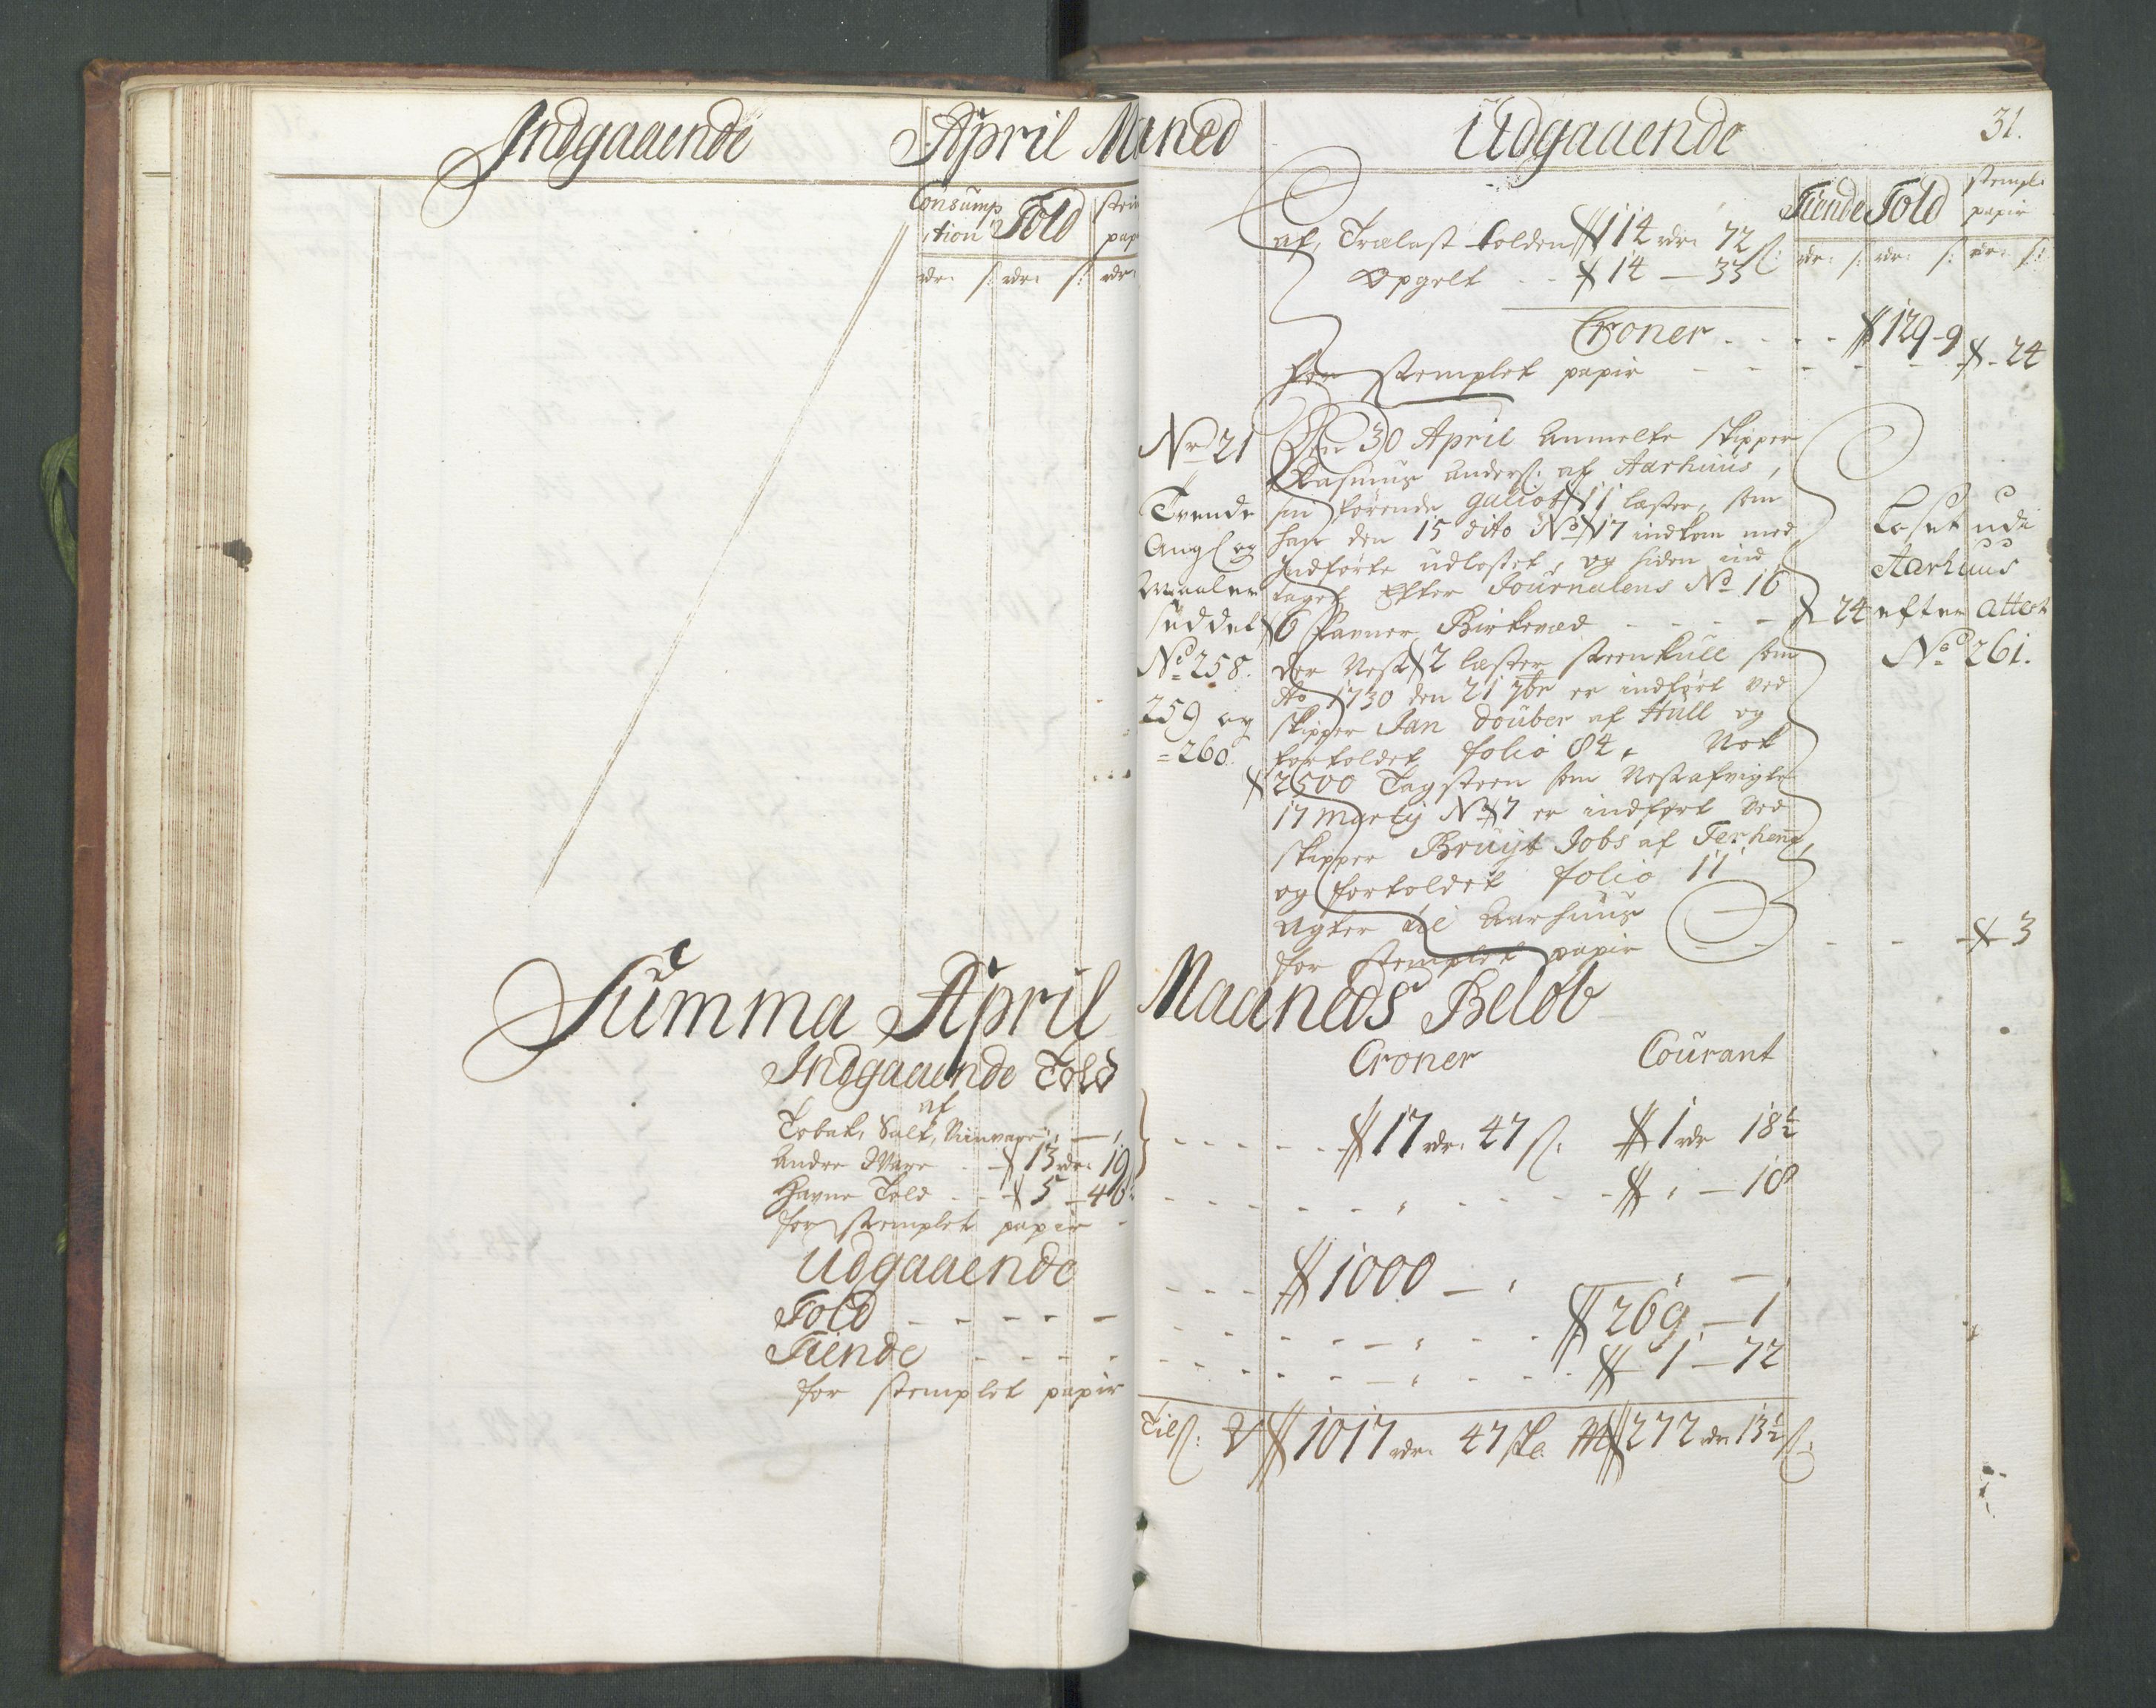 Indgaaende April Maaned Udgaaende 31.
Consump
,tion Told
rdr: s: rdr: s: rdr:
Tiende Told stempl:
papir
rdr: s: rdr: s: rdr: s:
af, Trælast tolden 114 rdr: 72 s:
Opgelt - - 14 - 33
Croner - - - - 129 - 9
for stemplet papir - - - - - - 24
No 21
Tvende
Ang: og
Maaler
seddel
No 258.
259 og
=260.
Den 30 April Anmelte skipper
Rasmus Anders: af Aarhuus,
sin førende galiot 11 læster, som
har den 15 dito No 17 indkom med
indførte udlosset, og siden ind
taget Efter Journalens No 16
6 favner Birkeved - - - - 24
der Nest 2 læster steenkull som
Ao 1730 den 21 7br er indført ved
skipper Jan Douber af Hull og
fortoldet folio 84, Nok
2500 Tagsteen som Nestafvigte
17 Martij No 7 er indført ved
skipper Bruijt Jobs af Terhenne,
og fortoldet folio 11
Agter til Aarhuus
for stemplet papir - - - - 3
Losset udi
Aarhuus
efter attest
No 261.
Summa April Maaneds Beløb
Croner Courant
Indgaaende Told
af
Tobak, Salt, - ,
Andre Vare - 13 rdr: 19 - - - - - 17 rdr: 47 s: 1 rdr 18½
Havne Told - - 5 - 46½
for stemplet papir - - - - - - - - , - - - - - , - 18
Udgaaende
Told - - - - - - - - 1000 - , , -
Tiende - - - - - - - - - - , - - - 269 - 1
for stemplet papir - - - - - - , - - - 1 - 72
Til s: 1017 rdr: 47 sk: 272 rdr 13½ s: